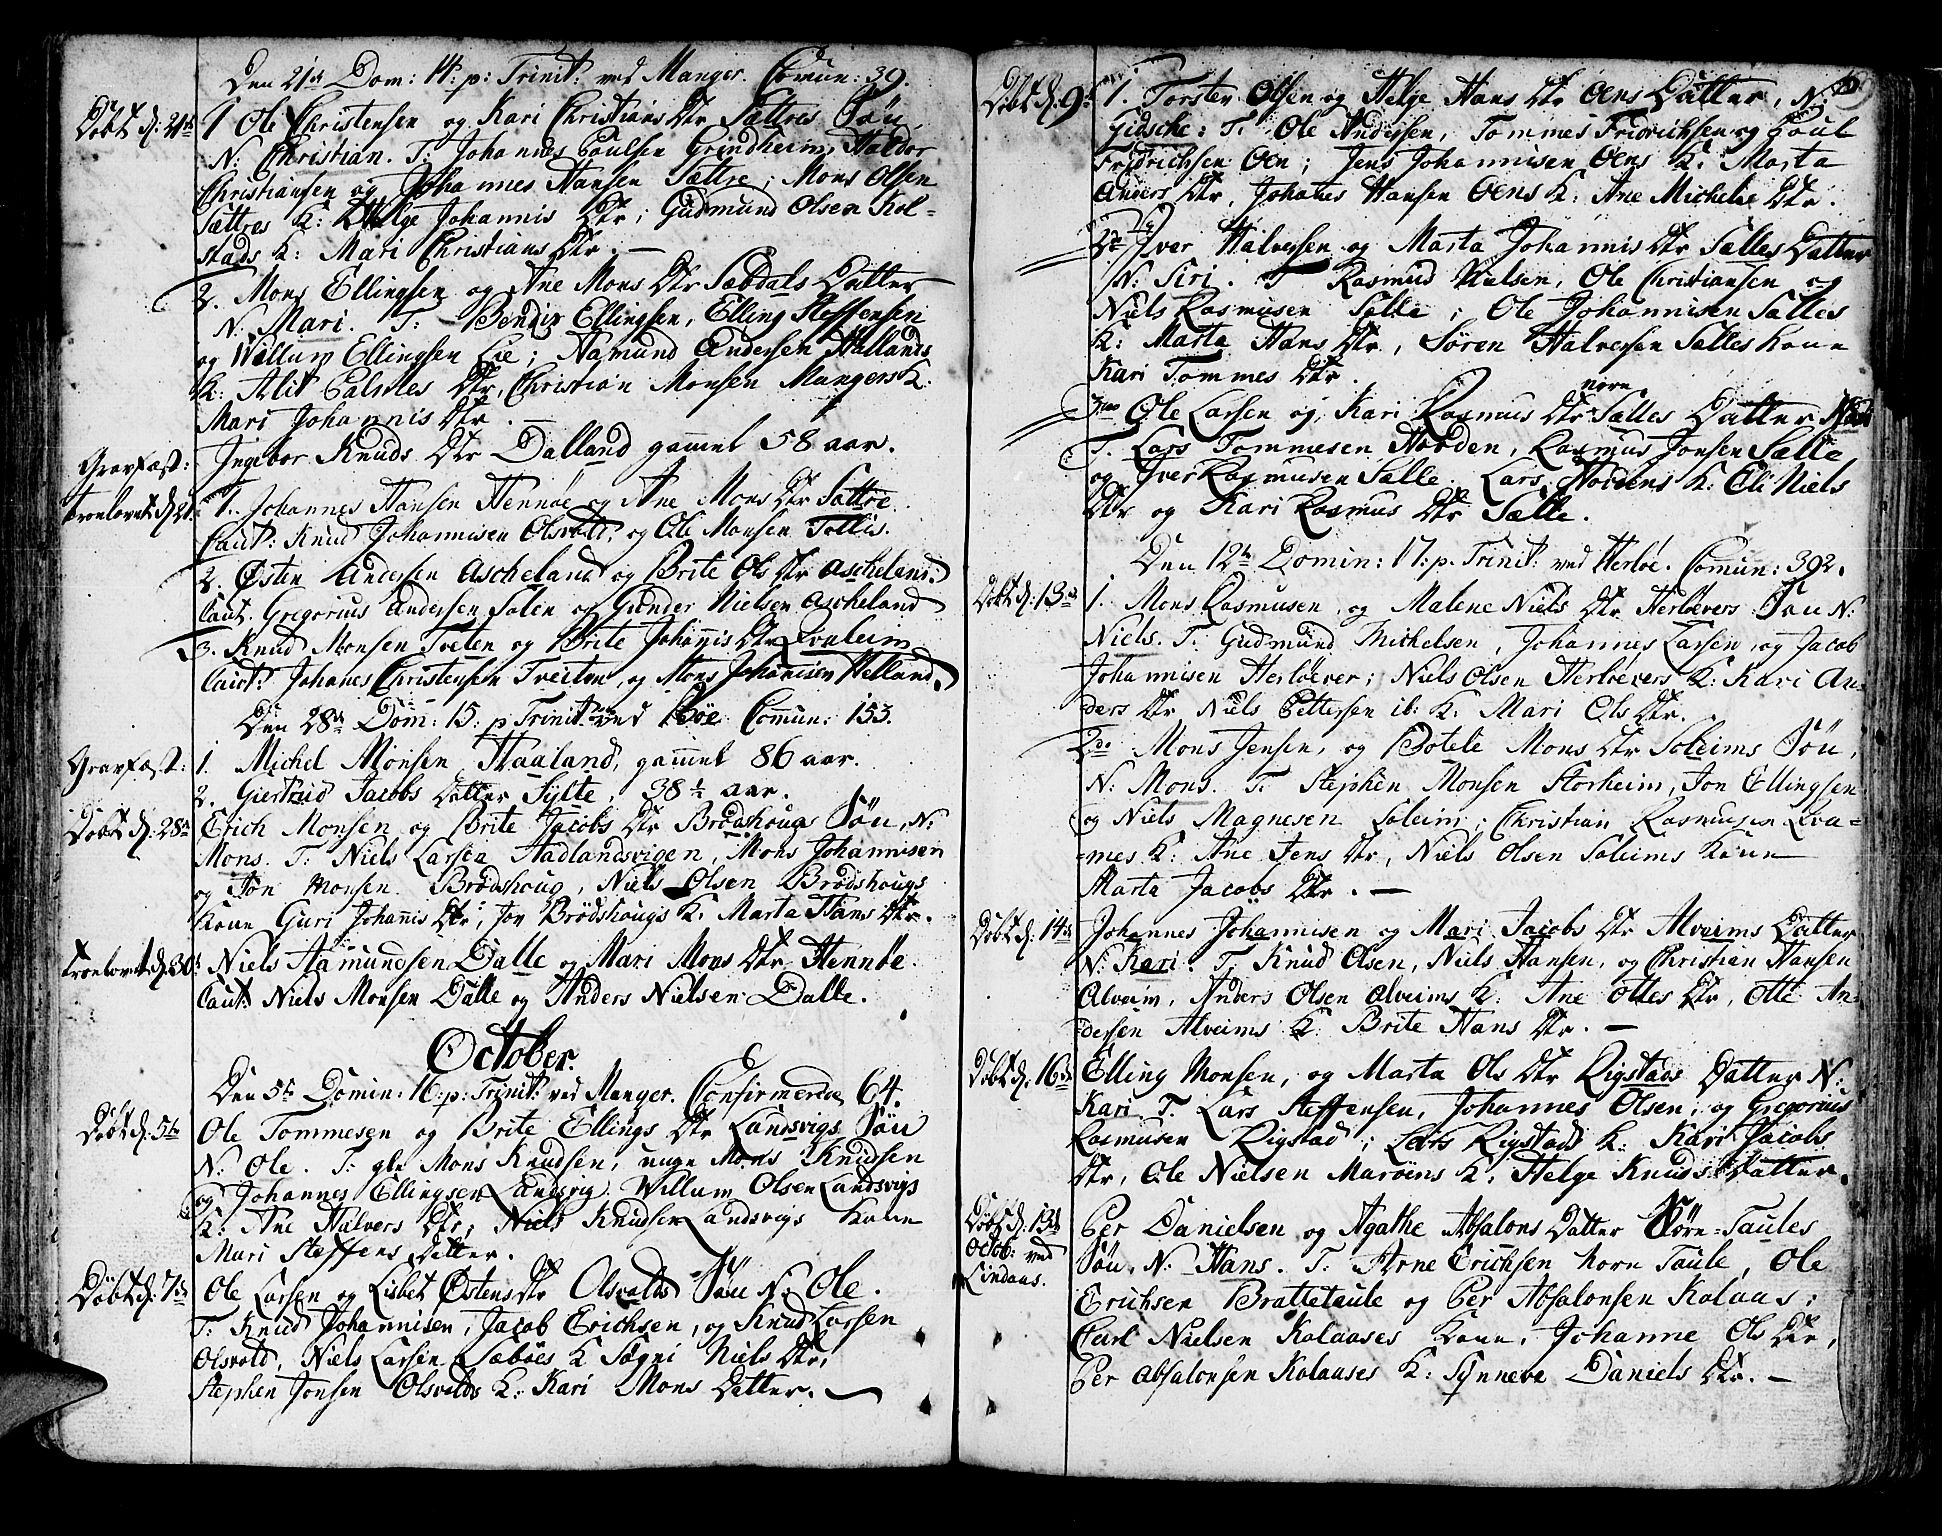 Den 21de Dom: 14: p: Trinit: ved Manger. Comun: 39.
Döbt d: 21de
1 Ole Christensen og Kari Christians Dtr Sættres Sön
N: Christian. T: Johannes Poulsen Grindheim, Haldor
Christiansen og Johannes Hansen Sættre; Mons Olsen
Sættres K: Helge Johannis Dtr; Gudmund Olsen Kol-
stads K: Mari Christians Dtr. —
2. Mons Ellingsen og Ane Mons Dtr Sæbdals Datter
N: Mari. T: Bendix Ellingsen, Elling Steffensen
og Willum Ellingsen Lie; Aamund Andersen Hallands
K: Alit Palmes Dtr, Christian Monsen Mangers K:
Mari Johannis Dtr.
Gravfæst:
Ingebor Knuds Dtr Dalland gammel 58 aar.
Troelovet d: 21.
1. Johannes Hansen Hennöe og Ane Mons Dtr Sættre
Caut: Knud Johannisen Olsvold, og Ole Monsen Tollis.
2. Østen Andersen Ascheland og Brite Ols Dtr Ascheland.
Caut. Gregorius Andersen Solen og Gunder Nielsen Ascheland
3. Knud Monsen Tveten og Brite Johannis Dtr Qvaleim
Caut: Johanes Christensen Treiten, og Mons Johannisen Helland.
Den 28de Dom: 15: p Trinit: ved Böe Comun: 153.
Gravfæst:
1. Michel Monsen Haaland, gammel 86 aar.
2. Giertrud Jacobs Datter Sylte, 38 ½ aar.
Döbt d: 28de
Erich Monsen og Brite Jacobs Dtr Brödshougs Sön, N:
Mons. T: Niels Larsen Aadlandsvigen, Mons Johannisen
og Jon Monsen Brödshoug, Niels Olsen Brödshougs
Kone Guri Johannis Dtr, Jon Brödshougs K. Marta Hans Dtr.
Troelovet d: 30:
Niels Hamundsen Dalle og Mari Mons Dtr Hennöe
Caut: Niels Monsen Dalle og Anders Nielsen Dalle.
October.
Den 5te Domin: 16: p: Trinit: ved Manger. Confirmerede 64.
Döbt d: 5te
Ole Tommesen og Brite Ellings Dtr Landsvigs Sön
N: Ole. T: gle Mons Knudsen, unge Mons Knudsen
og Johannes Ellingsen Landsvig. Willum Olsen Landsvigs
K: Ane Halvers Dtr, Niels Knudsen Landsvigs Kone
Mari Steffens Datter.
Döbt d: 7de
Ole Larsen og Lisbet Østens Dtr Olsvolds Sön N: Ole.
T: Knud Johannisen, Jacob Erichsen, og Knud Larsen
Olsvold, Niels Larsen Sæböes K Sögni Niels Dtr,
Stephen Jonsen Olsvolds K: Kari Mons Datter. —
Döbt d: 9de
1. Torsten Olsen og Helge Hans Dtr Oens Datter, N:
Gidsche: T: Ole Andersen, Tommes Fridrichsen og Poul
Fridrichsen Oen; Jens Johannisen Oens K: Marta
Anders Dtr, Johanes Hansen Oens K: Ane Michels Dtr.
2de Iver Halversen og Marta Johannis Dtr Sælles Datter
N: Siri. T Rasmus Nielsen, Ole Christiansen og
Niels Rasmusen Sælle; Ole Johannisen Sælles
K: Marta Hans Dtr, Sören Halversen Sælles Kone
Kari Tommes Dtr.
3tie Ole Larsen og Kari Rasmus Dtr nörn Sælles Datter
T. Lars Tommesen Hovden, Rasmus Jonsen Sælle
og Iver Rasmusen Sælle. Lars Hovdens K: Eli Niels
Dtr og Kari Rasmus Dtr Sælle.
Den 12te Domin: 17: p. Trinit: ved Herlöe. Comun: 392.
Döbt d: 13de
1. Mons Rasmusen og Malene Niels Dtr Herlöevers Sön N:
Niels. T: Gudmund Michelsen, Johannes Larsen, og Jacob
Johannisen Herlöever; Niels Olsen Herlöevers K: Kari An-
ders Dtr Niels Pettersen ib: K: Mari Ols Dtr.
2de Mons Jensen, og Botele Mons Dtr Soleims Sön,
N: Mons. T. Stephen Monsen Storheim, Jon Ellingsen
og Niels Magnesen Soleim; Christian Rasmusen Qva-
mes K: Ane Jens Dtr, Niels Olsen Soleims Kone
Marta Jacobs Dtr. —
Döbt d: 14de
Johannes Johannisen og Mari Jacobs Dtr Alveims Datter
N: Kari. T. Knud Olsen, Niels Hansen, og Christian Hansen
Alveim, Anders Olsen Alveims K: Ane Ottes Dtr, Otte An-
dersen Alveims K: Brite Hans Dtr. —
Döbt d: 16de
Elling Monsen, og Marta Ols Dtr Rigstads Datter N:
Kari. T. Lars Steffensen, Johannes Olsen, og Gregorius
Rasmusen Rigstad; Lars Rigstads K: Kari Jacobs
Dtr, Ole Nielsen Maröens K: Helge Knuds Datter.
Döbt d: 13de
Octob: ved
Lindaas.
Per Danielsen og Agathe Absalons Datter Nörn-Taules
Sön, N: Hans. T: Arne Erichsen Norn Taule, Ole
Erichsen Brattetaule og Per Absalonsen Kolaas;
Carl Nielsen Kolaases Kone, Johanne Ols Dtr,
Per Absalonsen Kolaases K: Synneva Daniels Dtr. —